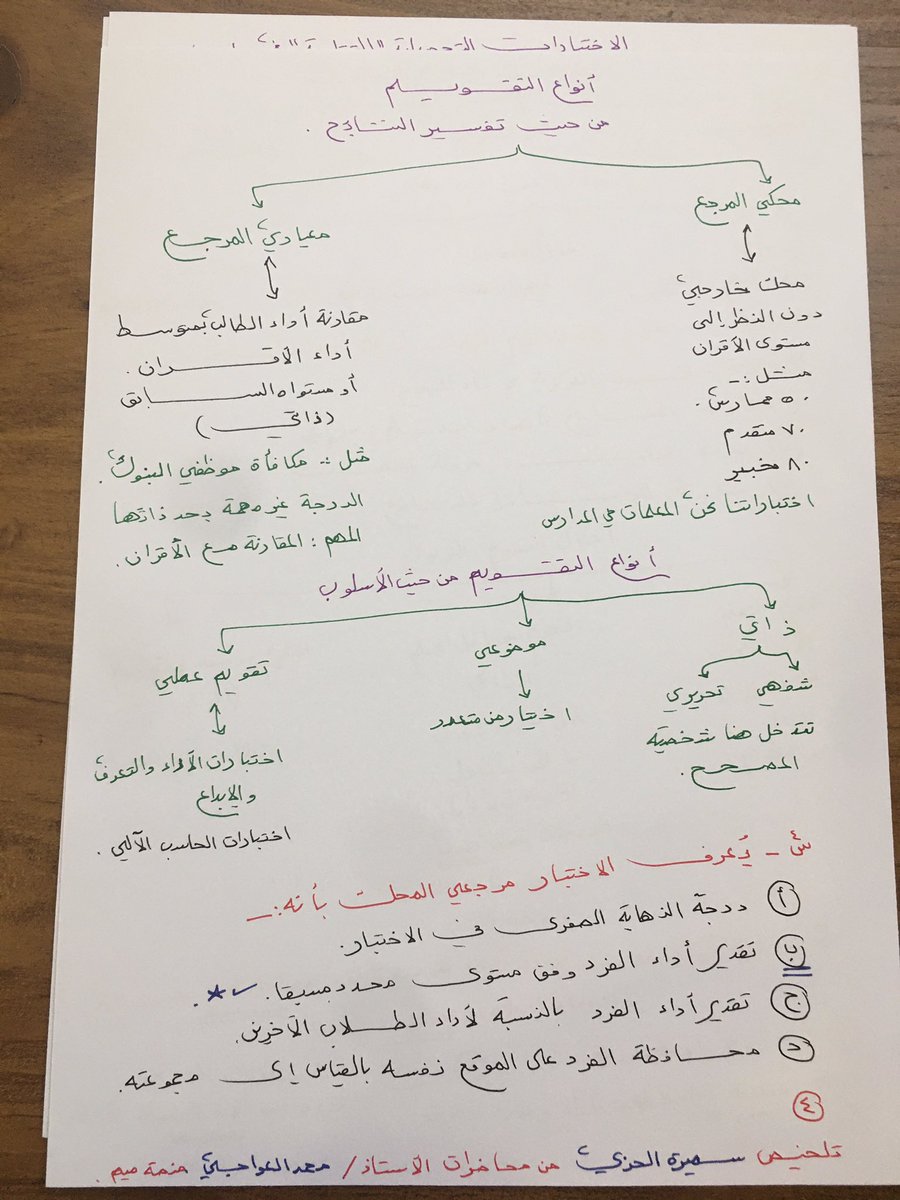 الاختبارات
أنواع التقويم
من حيث تفسير النتائج .
محكي المرجع
محك خارجي
دون النظر إلى
مستوى الأقران
مثل :-
٥٠ ممارس .
٧٠ متقدم
٨٠ خبير
اختباراتنا نحن المعلمات في المدارس
معياري المرجع
مقارنة أداء الطالب بمتوسط
أداء الأقران .
أو مستواه السابق
(ذاتي)
مثل :: مكافأة موظفي البنوك .
الدرجة غير مهمة بحد ذاتها
المهم : المقارنة مع الأقران .
أنواع التقويم من حيث الأسلوب
ذاتي
شفهي تحريري
تتدخل هنا شخصية
المصحح .
موضوعي
اختيار من متعدد
تقويم عملي
اختبارات الأداء والتعرف
والإبداع
اختبارات الحاسب الآلي .
س - يُعرف الاختبار مرجعي المحك بأنه :-
أ درجة النهاية الصغرى في الاختبار .
ب تقدير أداء الفرد وفق مستوى محدد مسبقا .
ج تقدير أداء الفرد بالنسبة لأداء الطلاب الآخرين .
د محافظة الفرد على الموقع نفسه بالقياس إلى مجموعته .
٤
تلخيص سميرة الحربي من محاضرات الأستاذ / محمد العواجي منصة ميم .